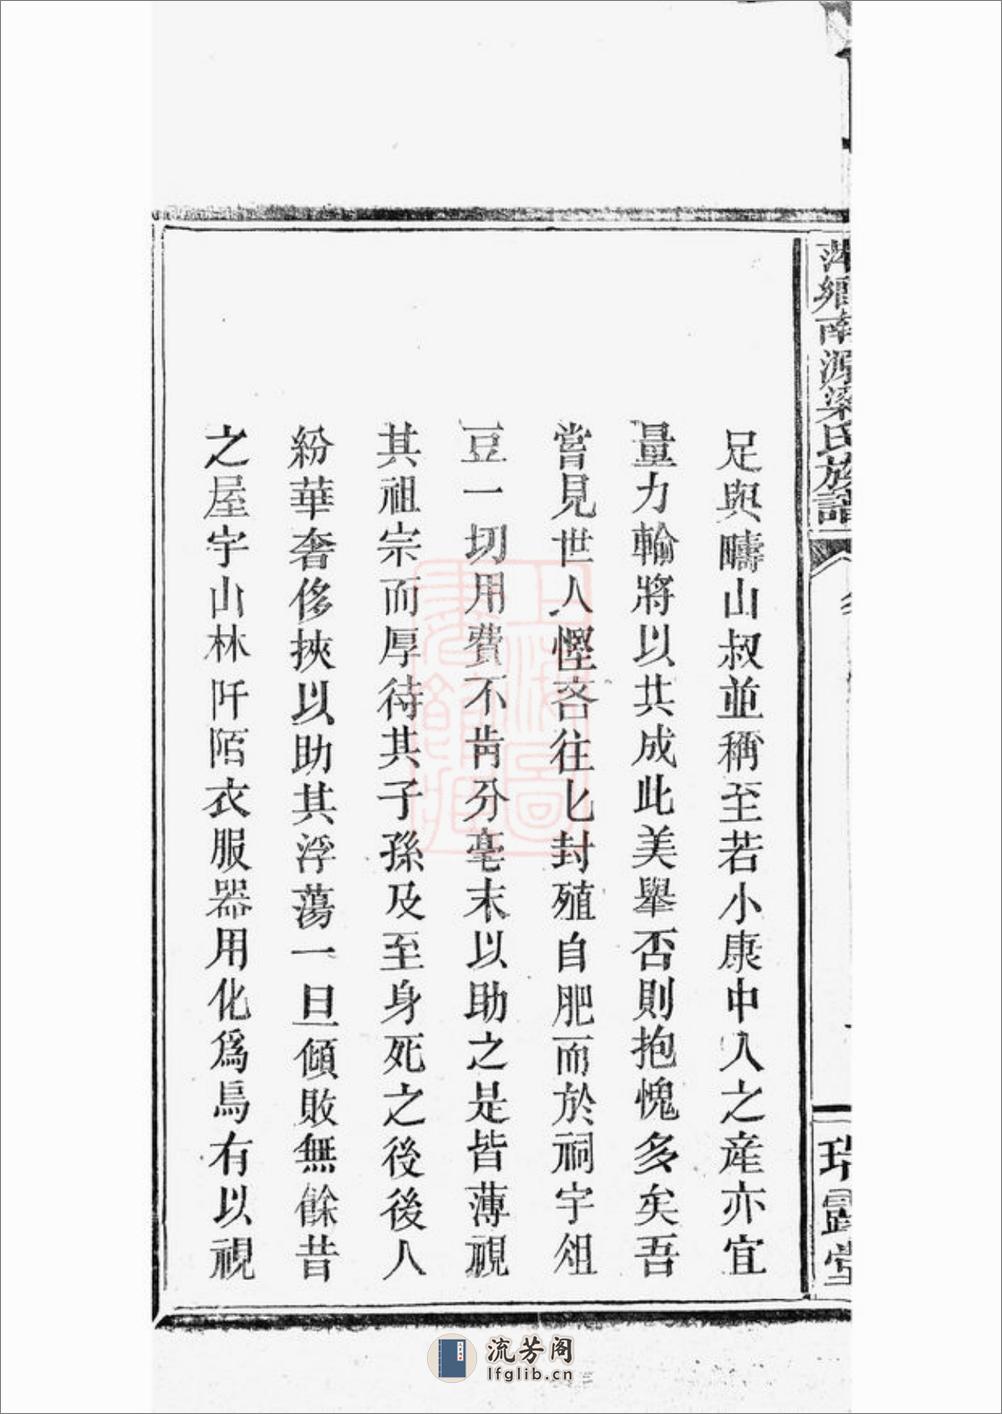 萍鄉南源梁氏族譜
瑞露堂
足與疇山叔並稱至若小康中人之産亦宜
量力輸將以共成此美舉否則抱愧多矣吾
嘗見世人慳吝往匕封殖自肥而於祠宇俎
豆一切用費不肯分毫末以助之是皆薄視
其祖宗而厚待其子孫及至身死之後後人
紛華奢侈挾以助其浮蕩一旦傾敗無餘昔
之屋宇山林阡陌衣服器用化爲烏有以視
上海圖書館藏
流芳阁
lfglib.cn